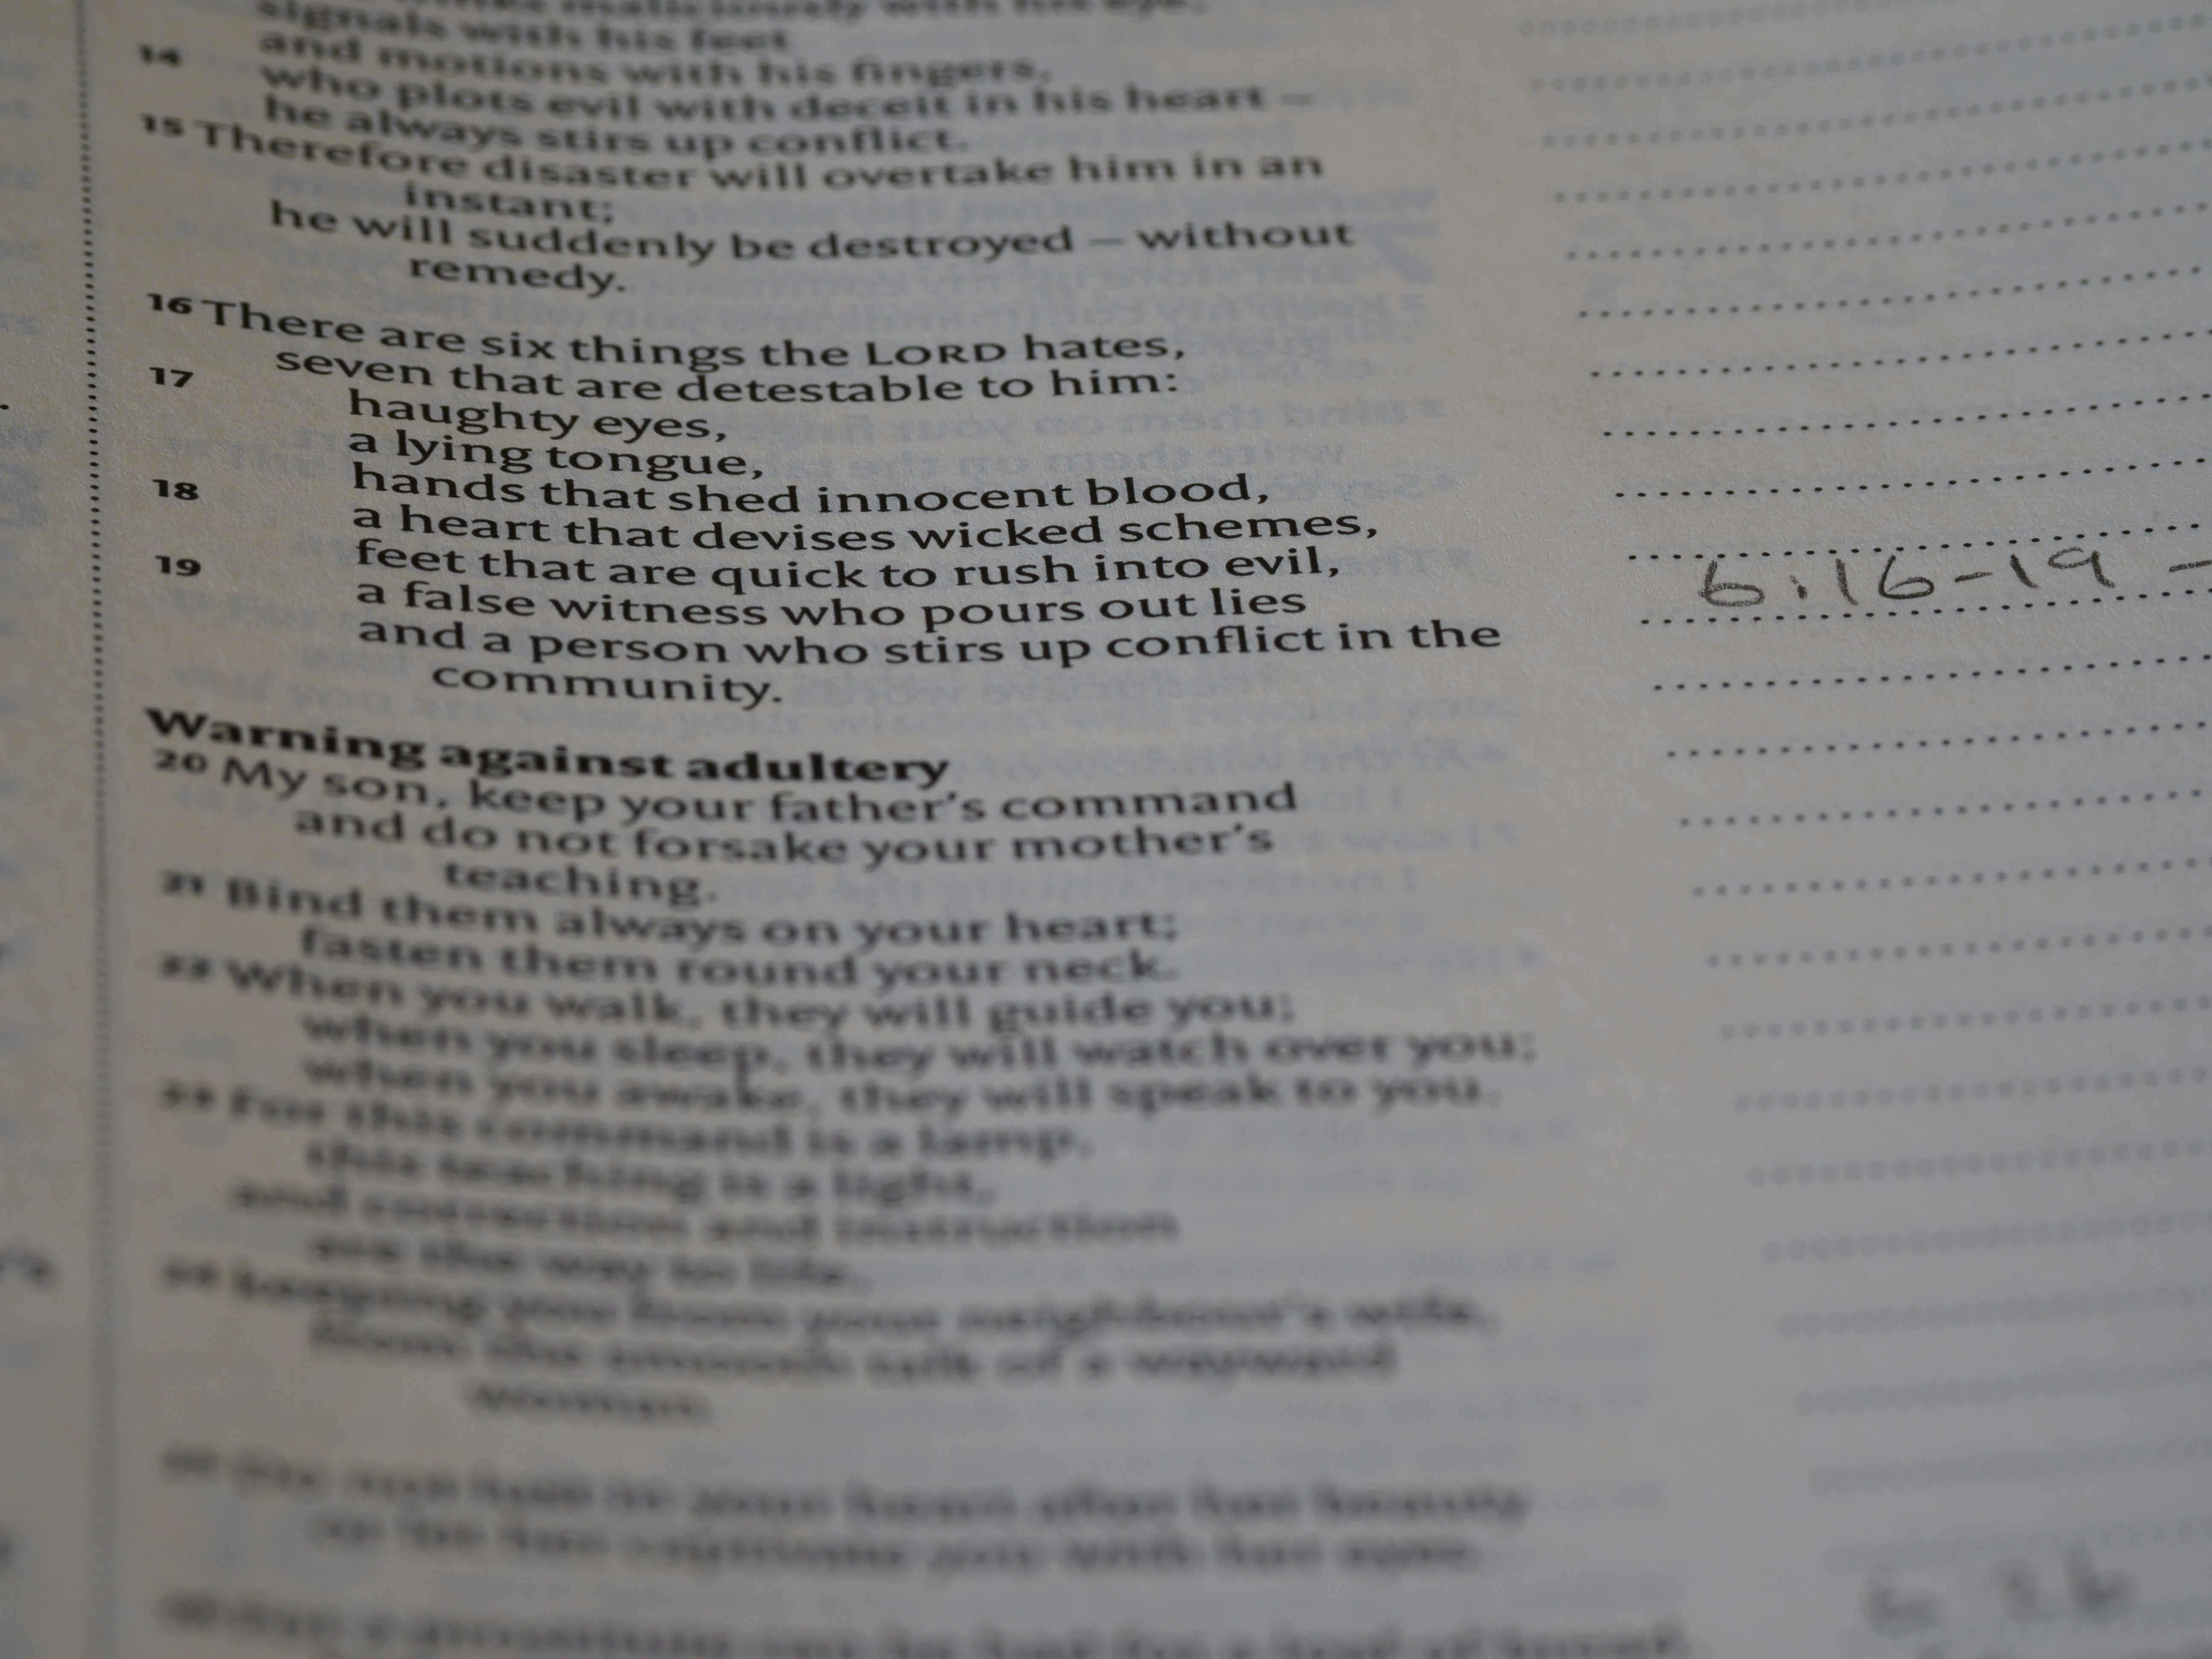 maliciously with his eye,
signals with his feet
and motions with his fingers,
14 who plots evil with deceit in his heart –
he always stirs up conflict.
15 Therefore disaster will overtake him in an
instant;
he will suddenly be destroyed – without
remedy.
16 There are six things the LORD hates,
seven that are detestable to him:
17 haughty eyes,
a lying tongue,
hands that shed innocent blood,
18 a heart that devises wicked schemes,
feet that are quick to rush into evil,
19 a false witness who pours out lies
and a person who stirs up conflict in the
community.
6:16-19 -
Warning against adultery
20 My son, keep your father’s command
and do not forsake your mother’s
teaching.
21 Bind them always on your heart;
fasten them round your neck.
22 When you walk, they will guide you;
when you sleep, they will watch over you;
when you awake, they will speak to you.
23 For this command is a lamp,
this teaching is a light,
and correction and instruction
are the way to life,
24 keeping you from your neighbour’s wife,
from the smooth talk of a wayward
woman.